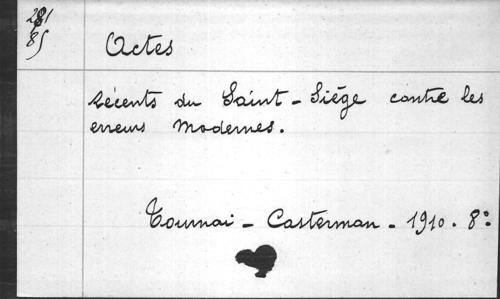 281
85
Actes
Récents du Saint-Siège contre les
erreurs modernes.
Tournai - Casterman - 1910. 8°